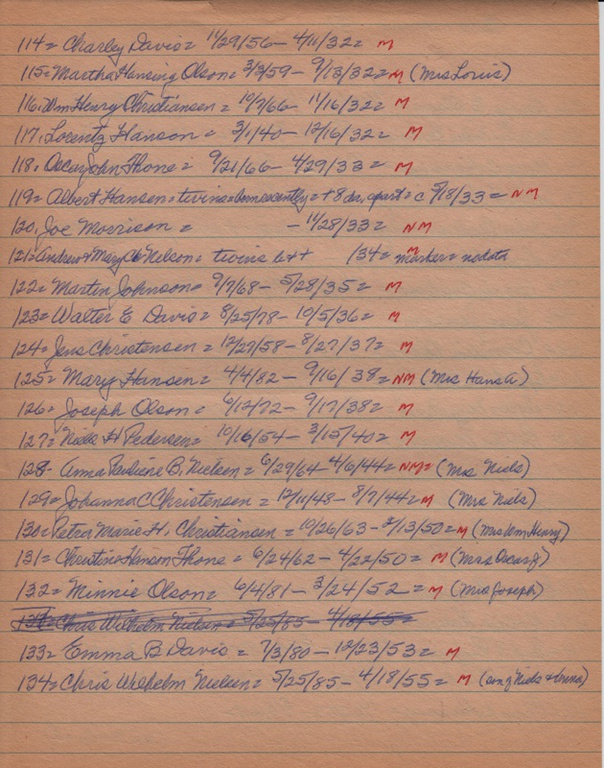 114= Charley Davis = 11/29/56 - 4/11/32 = M
115= Martha Hansing Olson = 3/3/59 - 9/13/32 = M (Mrs Louis)
116. Wm Henry Christiansen = 10/7/66 - 11/16/32 = M
117. Lorentz Hanson = 3/1/40 - 12/16/32 = M
118. Oscar John Thone = 9/21/66 - 4/29/33 = M
119= Albert Hansen = twins = + 8 da. apart = c 5/18/33 = NM
120. Joe Morrison = - 11/28/33 = NM
121= Andrew & Mary Nelson = twins 134= marker = no data M
122= Martin Johnson = 9/7/68 - 5/28/35 = M
123= Walter E Davis = 8/25/78 - 10/5/36 = M
124= Jens Christensen = 12/27/58 - 8/27/37 = M
125= Mary Hansen = 4/4/82 - 9/16/38 = NM (Mrs Hans A)
126= Joseph Olson = 6/12/72 - 9/17/38 = M
127= Niels H Pedersen = 10/16/54 - 3/15/40 = M
128- Anna Pauliene B. Nielsen = 6/29/64 - 4/6/44 = NM = (Mrs Niels)
129= Johanna C Christensen = 12/11/48 - 8/7/44 = M (Mrs Niels)
130= Petra Marie H. Christiansen = 10/26/63 - 2/13/50 = M (Mrs Wm Henry)
131= Christine Hanson Thone = 6/24/62 - 4/22/50 = M (Mrs Oscar J)
132= Minnie Olson = 6/4/81 - 3/24/52 = M (Mrs Joseph)
Chris Wilhelm Nielsen = 5/25/85 - 4/18/55 =
133= Emma B Davis = 7/3/80 - 12/23/53 = M
134= Chris Wilhelm Nielsen = 5/25/85 - 4/18/55 = M (son of Niels & Anna)